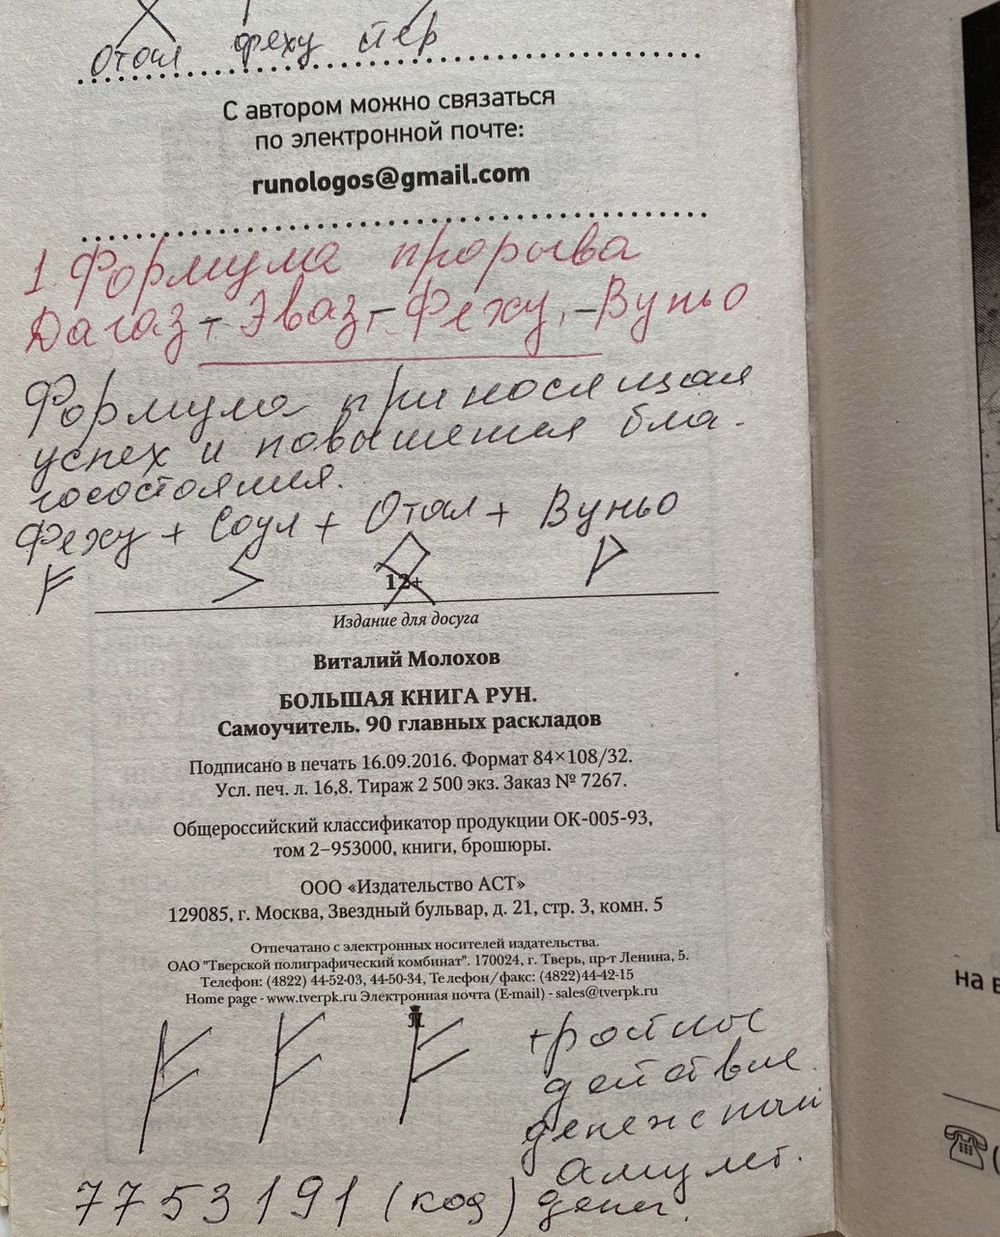 Отал феху йер
С автором можно связаться
по электронной почте:
runologos@gmail.com
1. Формула прорыва
Дагаз - Эваз - Феху, - Вуньо
Формула приносящая
успех и повышения бла-
госостояния.
Феху + Соул + Отал + Вуньо
12+
Издание для досуга
Виталий Молохов
БОЛЬШАЯ КНИГА РУН.
Самоучитель. 90 главных раскладов
Подписано в печать 16.09.2016. Формат 84×108/32.
Усл. печ. л. 16,8. Тираж 2 500 экз. Заказ № 7267.
Общероссийский классификатор продукции ОК-005-93,
том 2–953000, книги, брошюры.
ООО «Издательство АСТ»
129085, г. Москва, Звездный бульвар, д. 21, стр. 3, комн. 5
Отпечатано с электронных носителей издательства.
ОАО "Тверской полиграфический комбинат". 170024, г. Тверь, пр-т Ленина, 5.
Телефон: (4822) 44-52-03, 44-50-34, Телефон/факс: (4822) 44-42-15
Home page - www.tverpk.ru Электронная почта (E-mail) - sales@tverpk.ru
тройное
действие
денежный
амулет.
7753191 (код) денег.
на в